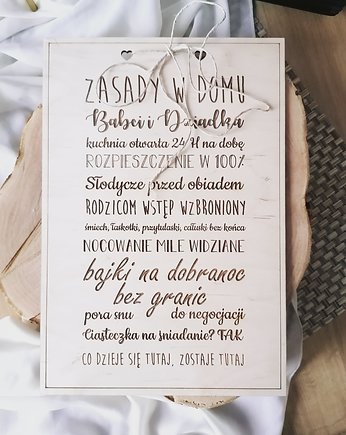 ZASADY W DOMU
Babci i Dziadka
kuchnia otwarta 24 H na dobę
ROZPIESZCZENIE W 100%
Słodycze przed obiadem
RODZICOM WSTĘP WZBRONIONY
śmiech, łaskotki, przytulaski, całuski bez końca
NOCOWANIE MILE WIDZIANE
bajki na dobranoc
bez granic
pora snu do negocjacji
Ciasteczka na śniadanie? TAK
CO DZIEJE SIĘ TUTAJ, ZOSTAJE TUTAJ